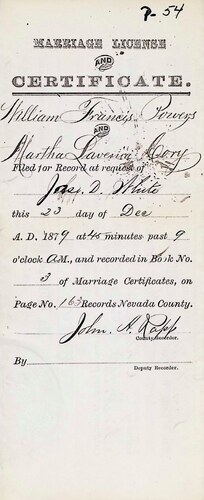 P- 54
MARRIAGE LICENSE
AND
CERTIFICATE.
William Francis Powers
AND
Martha Lavenia Cory
Filed for Record at request of
Jas. D. White
this 23 day of Dec
A. D. 1879 at 45 minutes past 9
o'clock A.M., and recorded in Book No.
3 of Marriage Certificates, on
Page No. 163 Records Nevada County.
John A. Rapp
County Recorder.
By
Deputy Recorder.